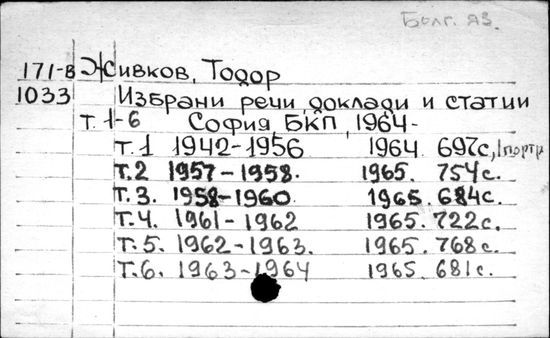 Болг. яз.
171-в Живков, Тодор
1033 Избрани речи, доклади и статии
т. 1-6 София, БКП, 1964-
т. 1 1942-1956 1964 697с, 1 портр
т. 2 1957-1958. 1965. 754с.
т. 3. 1958-1960 1965. 684с.
т. 4. 1961-1962 1965. 722с.
т. 5. 1962-1963. 1965. 768с.
т. 6. 1963-1964 1965. 681с.